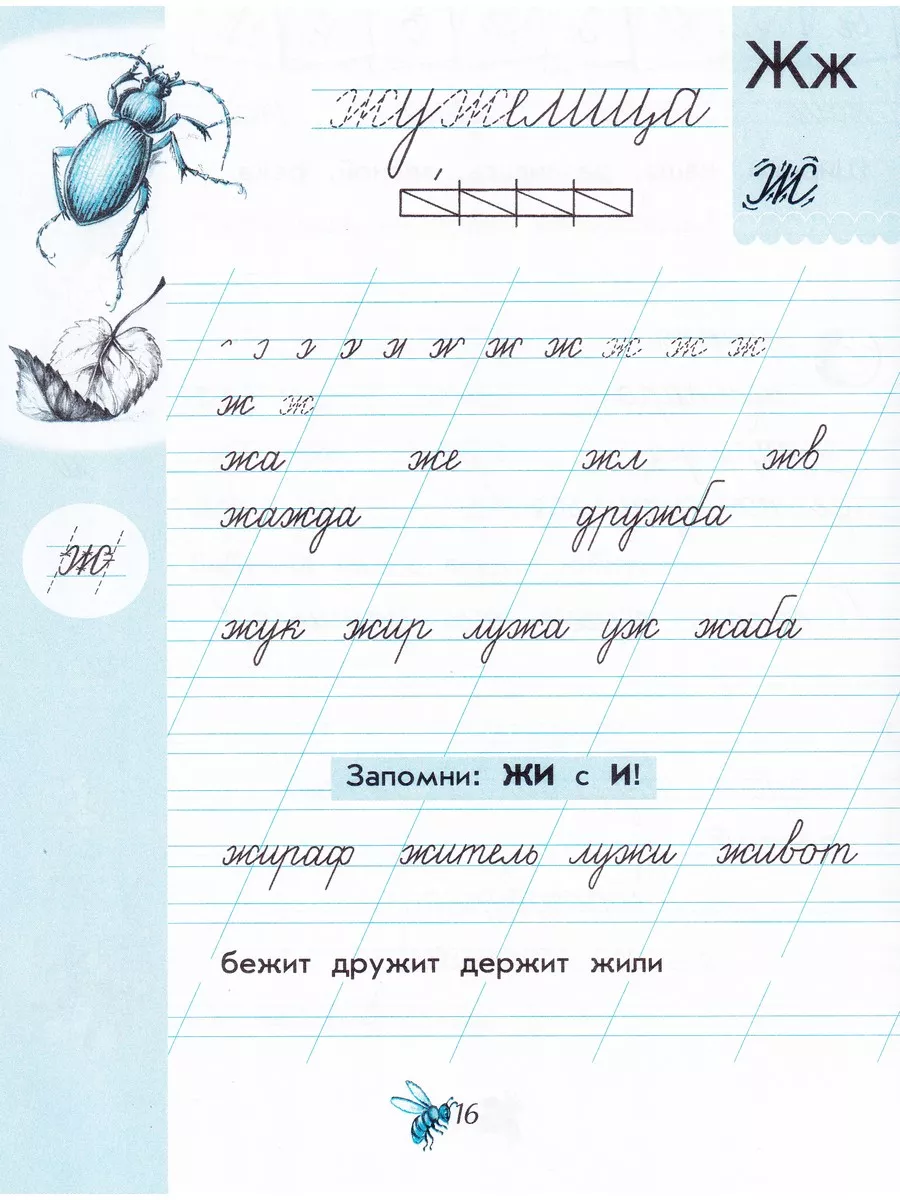 Жж
жужелица
ж
ж ж ж ж ж ж
ж ж
жа же жл жв
жажда дружба
ж
жук жир лужа уж жаба
Запомни: ЖИ с И!
жираф житель лужи живот
бежит дружит держит жили
16